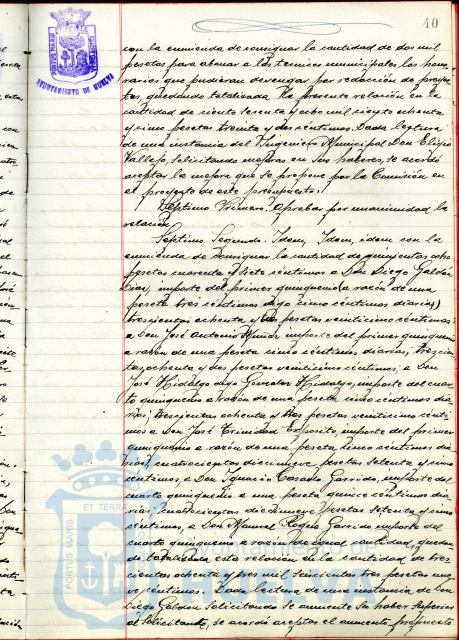 40
AYUNTAMIENTO DE HUELVA
con la enmienda de consignar la cantidad de dos mil
pesetas para abonar a los técnicos municipales los hono
rarios que pudieran devengar por redacción de proyec
tos, quedando totalizada la presente relación en la
cantidad de ciento sesenta y ocho mil ciento ochenta
y cinco pesetas treinta y dos céntimos. Dada lectura
de una instancia del Ingeniero Municipal Don
Vallejo, solicitando mejoras en sus haberes, se acordó
aceptar la mejora que se propone por la Comisión en
el proyecto de este presupuesto.
Séptimo Primero. Aprobar por unanimidad la
relación
Séptimo Segundo. Idem, Idem, idem con la
enmienda de consignar la cantidad de quinientas ocho
pesetas cuarenta y siete céntimos a Don Diego Galdón
importe del primer quinquenio (a razón de una
peseta tres céntimos digo cinco céntimos diarias)
trescientas ochenta y tres pesetas veinticinco céntimos;
a Don José Antonio Muñoz importe del primer quinquenio
a razón de una peseta cinco céntimos diarias, trescien
tas ochenta y dos pesetas veinticinco céntimos; a Don
José Hidalgo digo Gonzalez Hidalgo, importe del cuar
to quinquenio a razón de una peseta cinco céntimos dia
rias; trescientas ochenta y tres pesetas veinticinco cénti
mos a Don José Trinidad Expósito importe del primer
quinquenio a razón de una peseta cinco céntimos dia
rias, cuatrocientas diecinueve pesetas setenta y cinco
céntimos, a Don Ignacio Casado Garrido, importe del
cuarto quinquenio a una peseta quince céntimos dia
rias; cuatrocientas diecinueve pesetas setenta y cinco
céntimos, a Don Manuel Garrido importe del
cuarto quinquenio a razón de igual cantidad, quedan
do totalizada esta relación en la cantidad de tres
cientas ochenta y tres mil seiscientas tres pesetas nue
ve céntimos. Dada lectura de una instancia de Don
Diego Galdón solicitando se aumente su haber superior
al solicitante, se acordó aceptar el aumento propuesto
PORTUS MARIS ET TERRAE
Ayuntamiento de
HUELVA